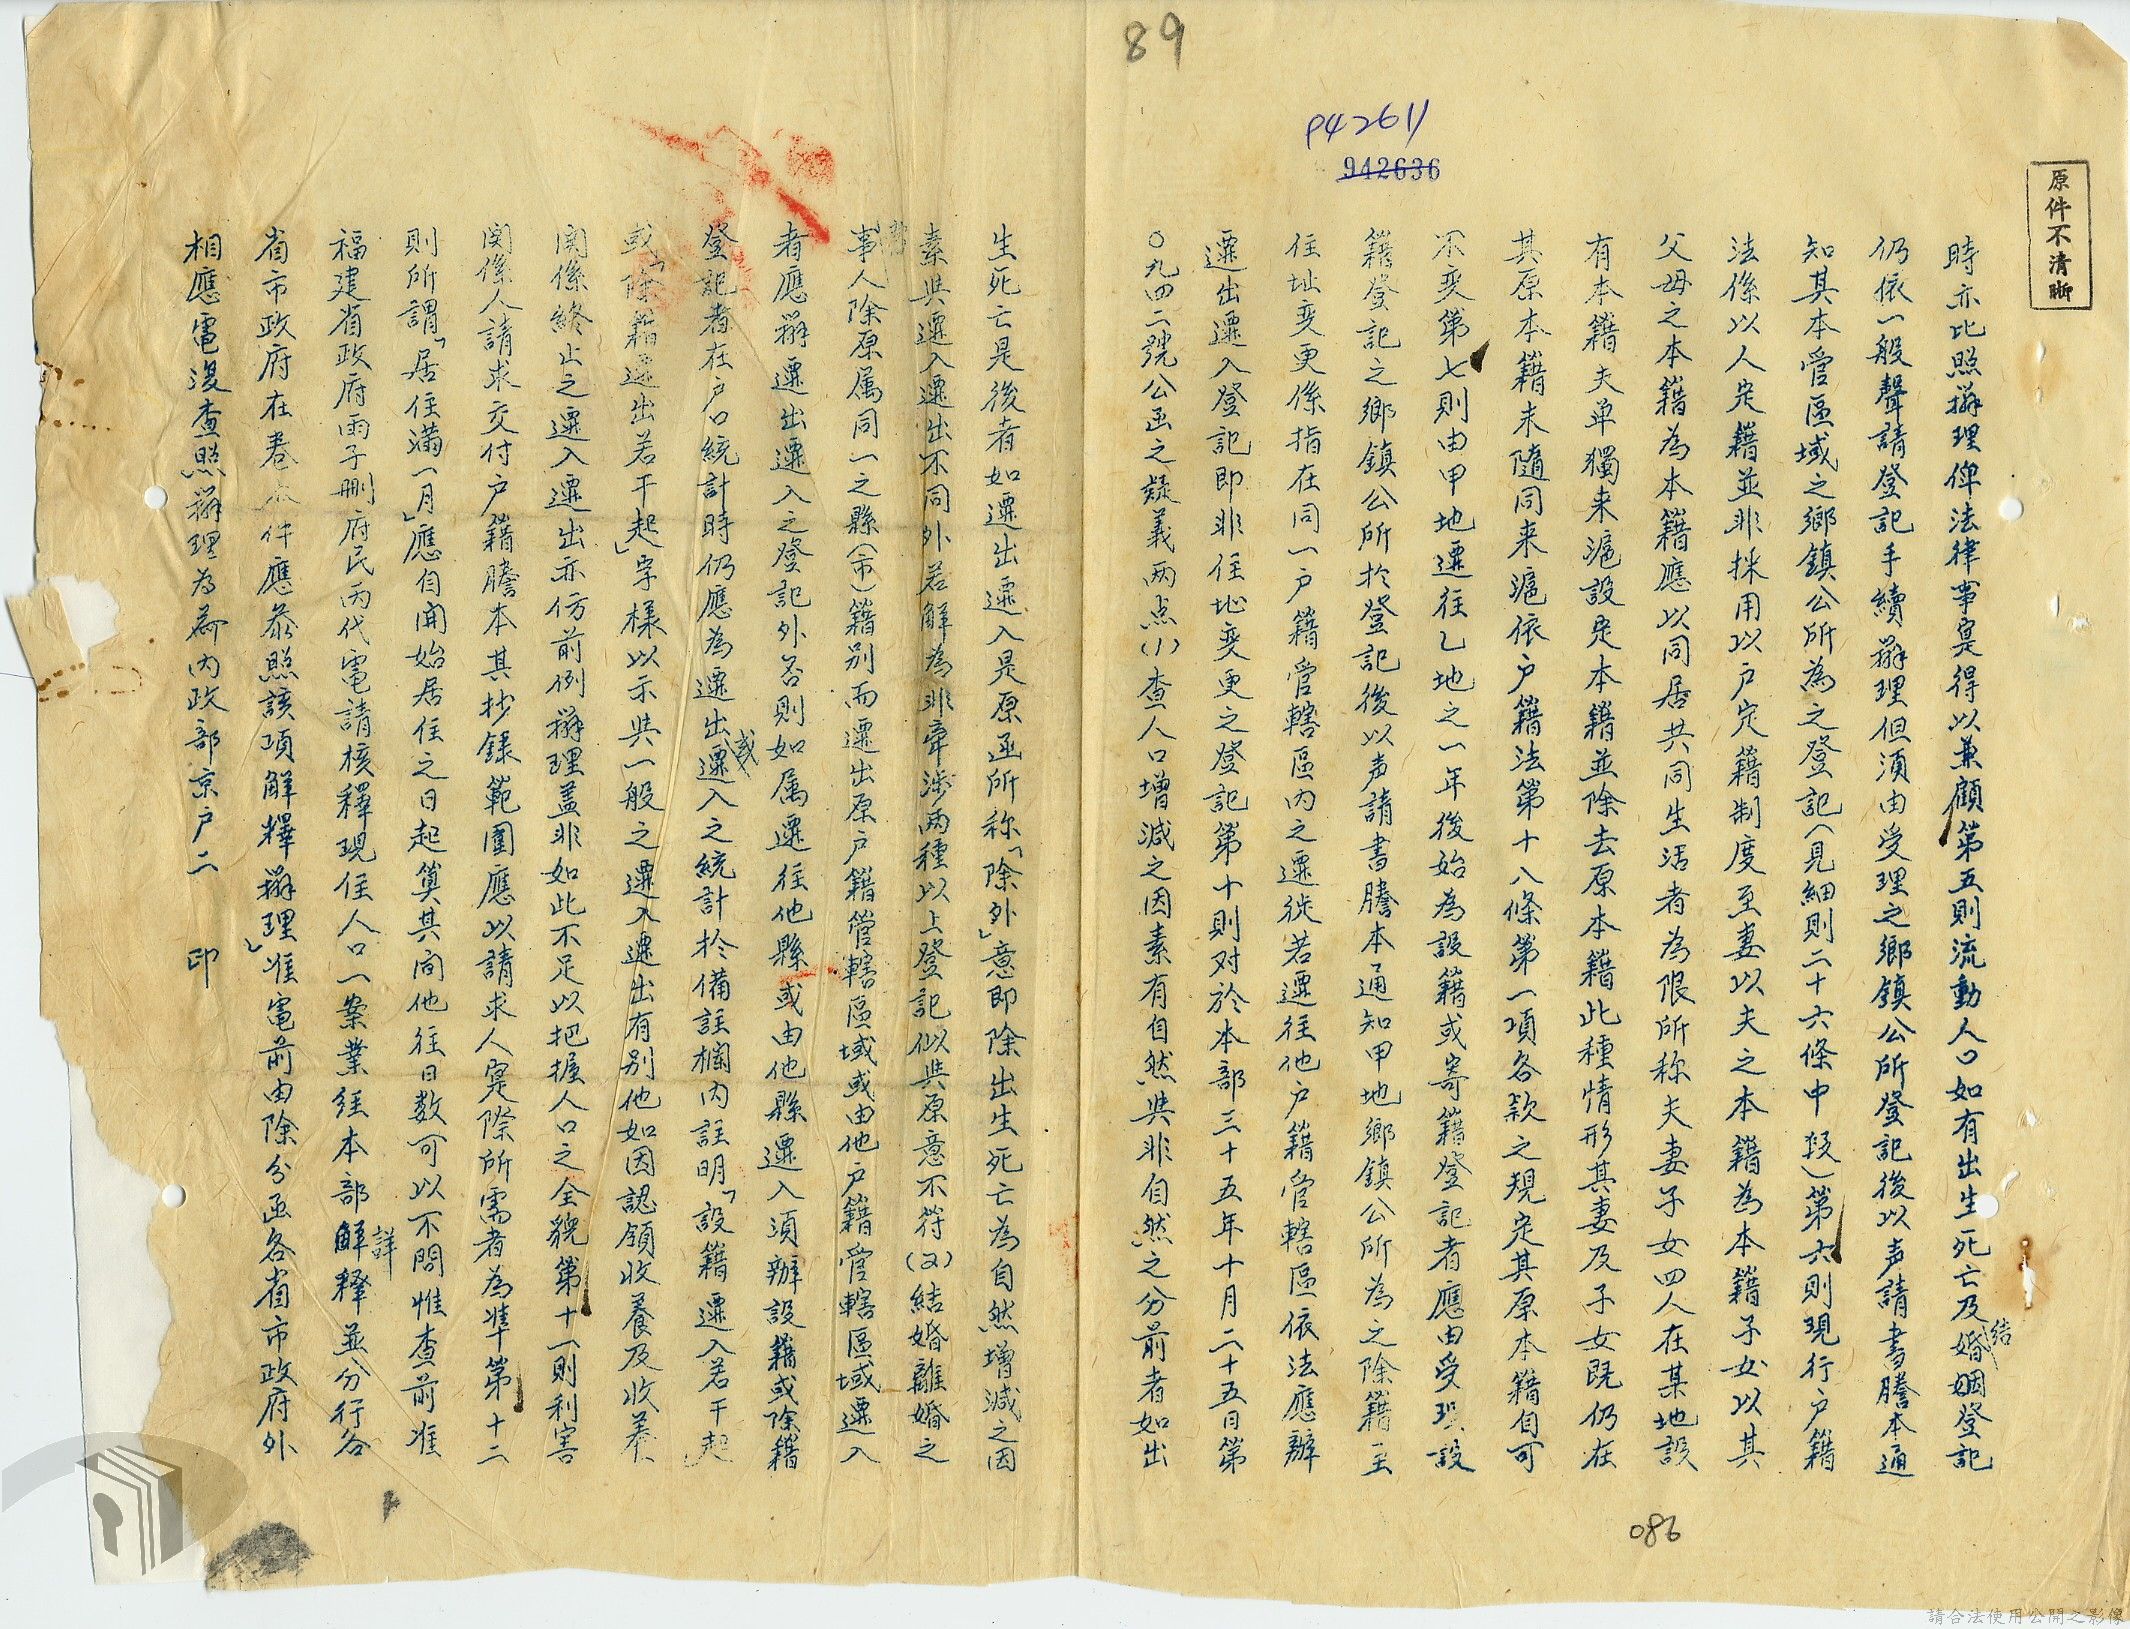 89
P42611
942636
原件不清晰
時亦比照辦理俾法律事實得以兼顧第五則流動人口如有出生死亡及結婚姻登記
仍依一般聲請登記手續辦理但須由受理之鄉鎮公所登記後以声請書謄本通
知其本管區域之鄉鎮公所為之登記(見細則二十六條中段)第六則現行户籍
法係以人定籍並非採用以户定籍制度至妻以夫之本籍為本籍子女以其
父母之本籍為本籍應以同居共同生活者為限所称夫妻子女四人在某地設
有本籍夫单獨来滬設定本籍並除去原本籍此種情形其妻及子女既仍在
其原本籍未隨同来滬依户籍法第十八條第一項各款之規定其原本籍自可
不变第七則由甲地遷往乙地之一年後始為設籍或寄籍登記者應由受理設
籍登記之鄉鎮公所於登記後以声請書謄本通知甲地鄉鎮公所為之除籍至
住址变更係指在同一户籍管轄區内之遷徙若遷往他户籍管轄區依法應辦
遷出遷入登記即非住址变更之登記第十則对於本部三十五年十月二十五日第
〇九四二號公函之疑義两点(1)查人口增減之因素有自然與非自然之分前者如出
生死亡是後者如遷出遷入是原函所称「除外」意即除出生死亡為自然增減之因
素與遷入遷出不同外若解為非牽涉两種以上登記似與原意不符(2)結婚離婚之
事人除原属同一之縣(市)籍别而遷出原户籍管轄區域或由他户籍管轄區域遷入
者應辦遷出遷入之登記外否則如属遷往他縣或由他縣遷入須辦設籍或除籍
登記者在户口統計時仍應為遷出或遷入之統計於備註欄内註明「設籍遷入若干起」
或「除籍遷出若干起」字樣以示與一般之遷入遷出有别他如因認領收養及收养
関係終止之遷入遷出亦仿前例辦理盖非如此不足以把握人口之全貌第十一則利害
関係人請求交付户籍謄本其抄錄範圍應以請求人寔際所需者為準第十二
則所謂「居住滿一月」應自開始居住之日起算其间他往日数可以不問惟查前准
福建省政府雨子刪府民丙代電請核釋現住人口一案業經本部詳解釋並分行各
省市政府在卷本件應叅照該項解釋辦理」准電前由除分函各省市政府外
相應電復查照辦理為荷内政部京户二　印
086
請合法使用公開之影像